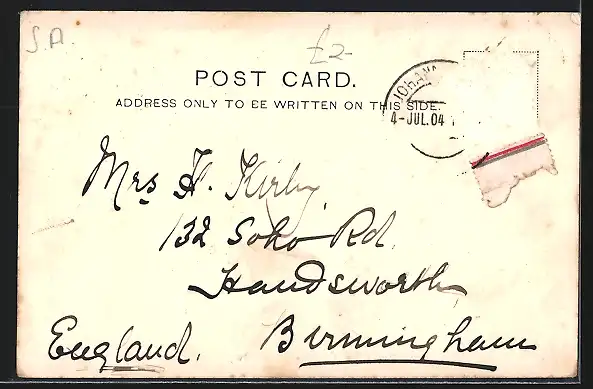 S.A.
£2-
POST CARD.
ADDRESS ONLY TO BE WRITTEN ON THIS SIDE.
JOHANN
4-JUL.04
Mrs H. Kirby,
132 Soho Rd.
Handsworth
Birmingham
England.